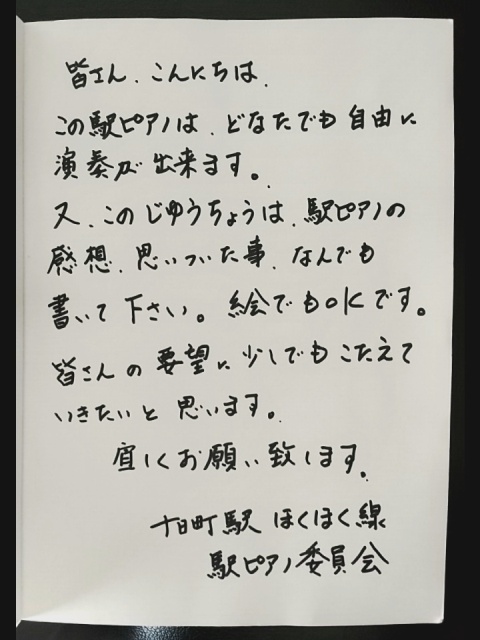 皆さん、こんにちは、
この駅ピアノは、どなたでも自由に
演奏が出来ます。
又、このじゆうちょうは、駅ピアノの
感想、思いついた事、なんでも
書いて下さい。絵でもOKです。
皆さんの要望に少しでもこたえて
いきたいと思います。
宜しくお願い致します。
十日町駅 ほくほく線
駅ピアノ委員会